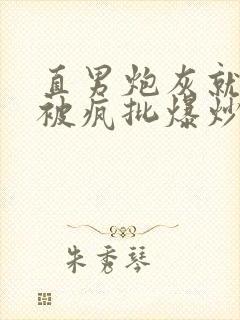 直男炮灰就
被疯批爆炒
朱秀琴